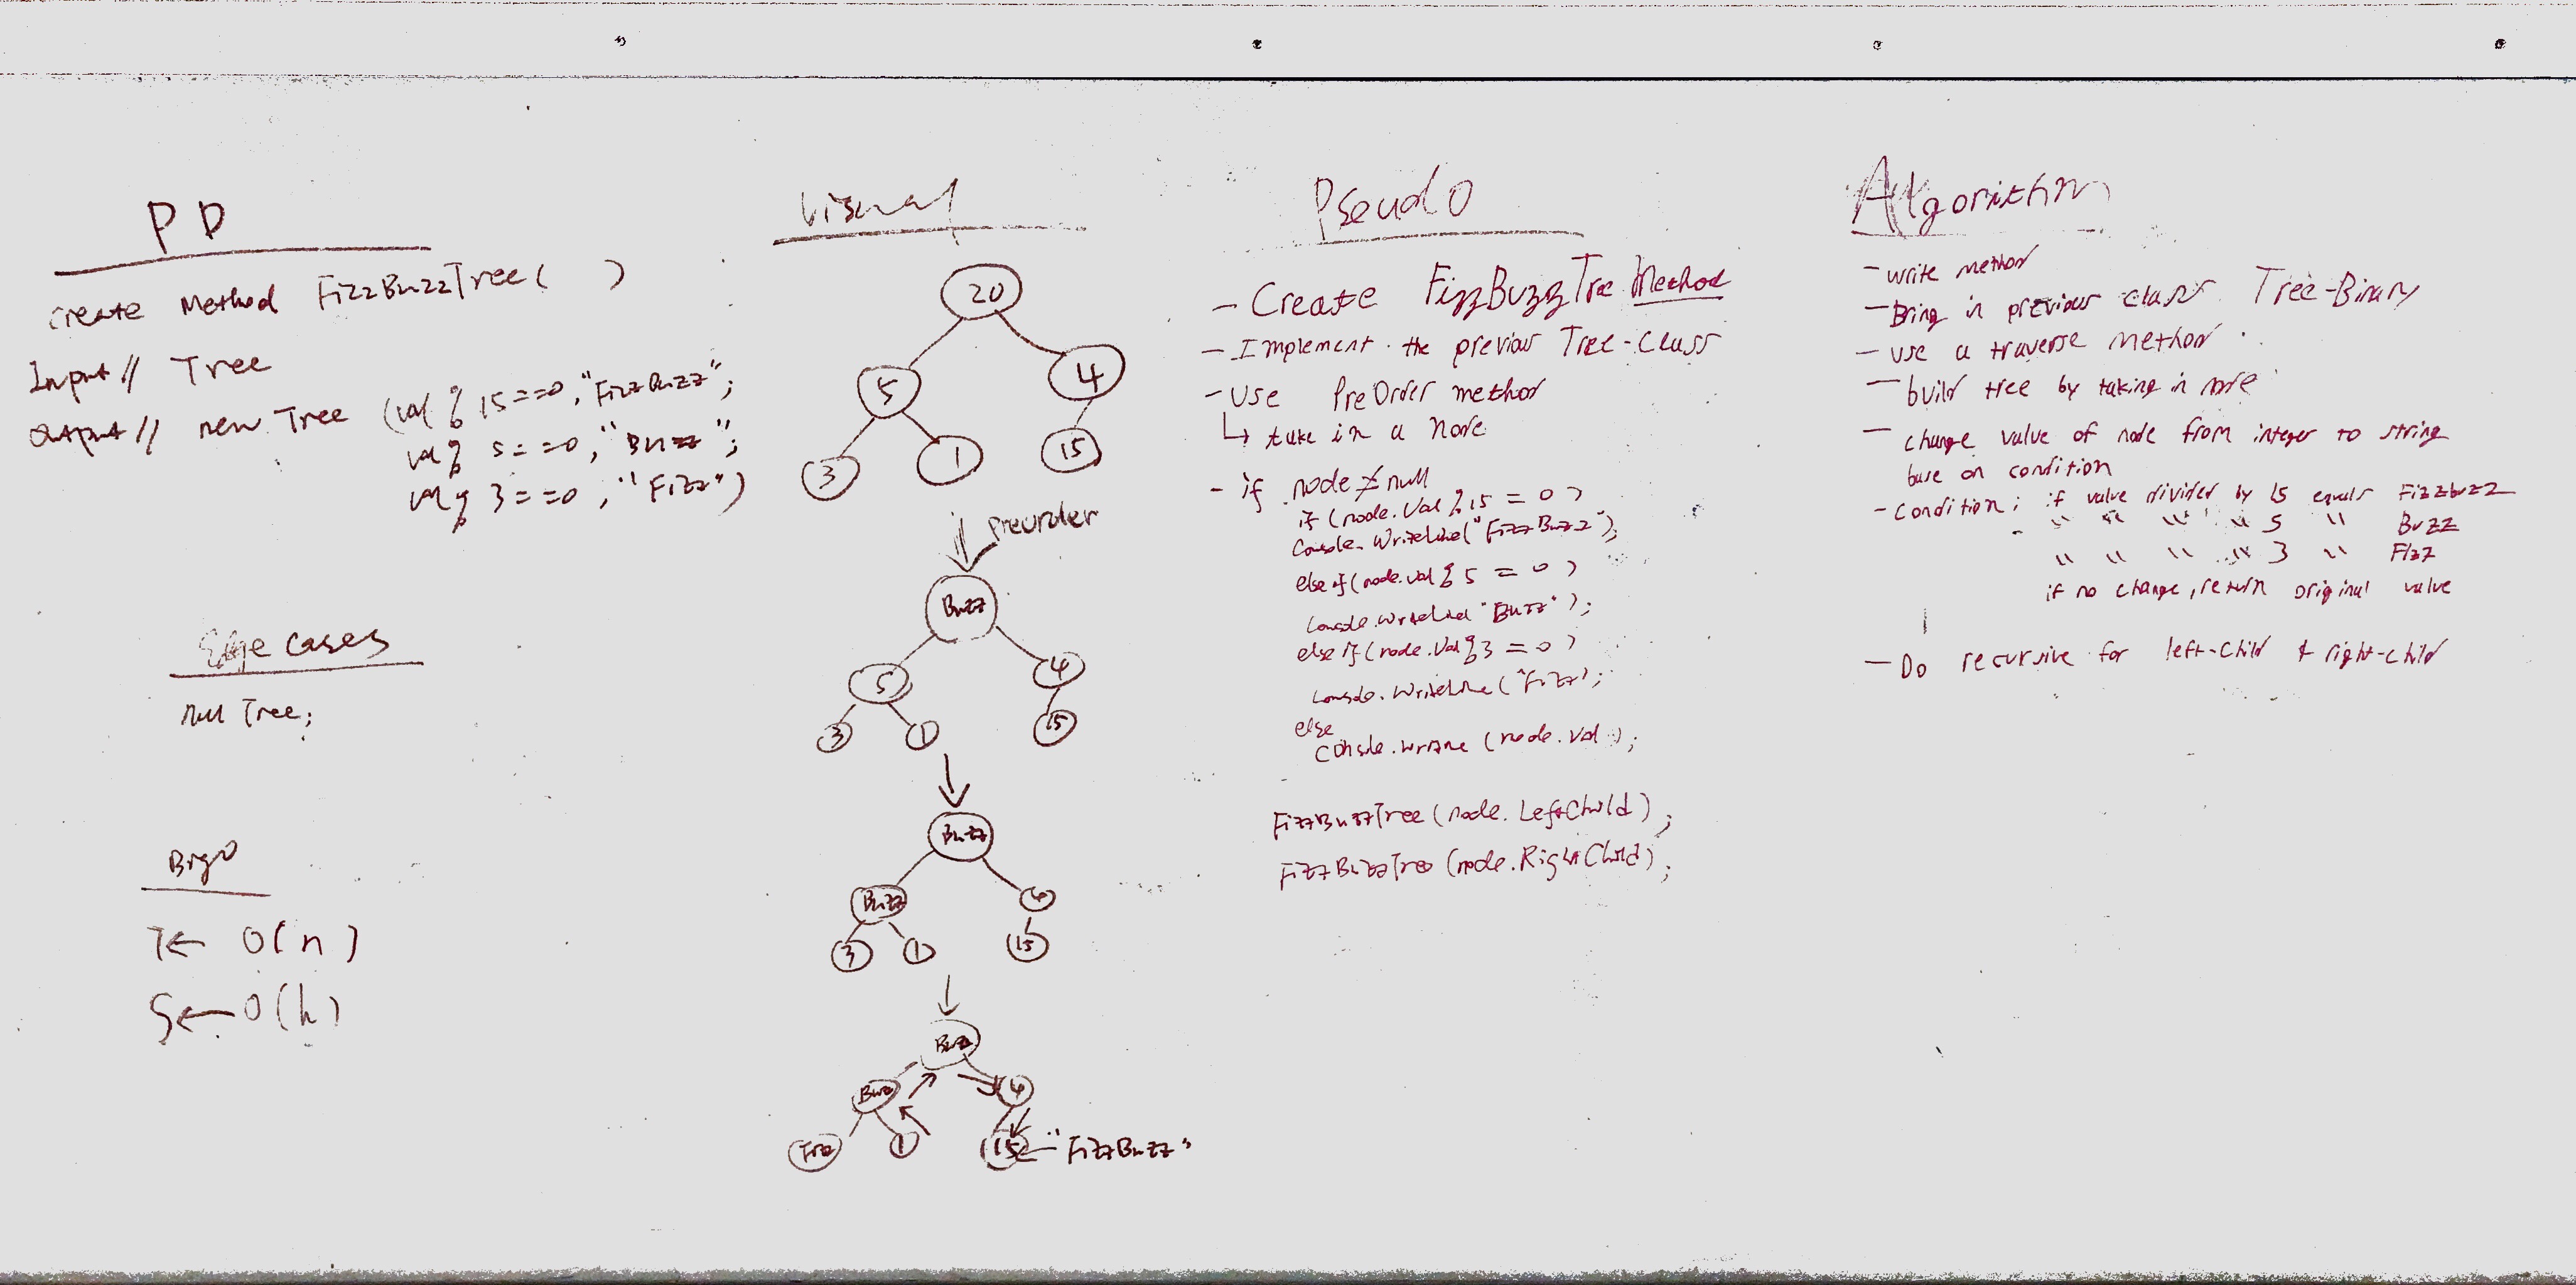 PD
Create Method FizzBuzzTree( )
Input// Tree
Output// new Tree (val % 15==0,"FizzBuzz";
val % 5==0,"Buzz";
val % 3==0,"Fizz")
Edge Cases
null Tree;
BigO
T← O(n)
S← O(h)
Visual
20
5
4
3
1
15
Preorder
Buzz
5
4
3
1
15
Buzz
Buzz
4
3
1
15
Buzz
Buzz
4
Fizz
1
15
← "FizzBuzz"
Pseudo
- Create FizzBuzzTree Method
- Implement the previous Tree-Class
- Use PreOrder method
↳ take in a node
- if node ≠ null
if (node.Val % 15 = 0)
Console.WriteLine("FizzBuzz");
else if (node.val % 5 = 0)
Console.WriteLine "Buzz");
else if (node.Val % 3 = 0)
Console.WriteLine("Fizz);
else
Console.Writline (node.val);
FizzBuzzTree(node.LeftChild);
FizzBuzzTree(node.RightChild);
Algorithm
- write method
- Bring in previous class Tree-Binary
- use a traverse method.
- build tree by taking in node
- change value of node from integer to string
base on condition
- Condition; if value divided by 15 equals Fizzbuzz
- " " " " 5 " Buzz
" " " " 3 " Fizz
if no change, return original value
- Do recursive for left-child & right-child